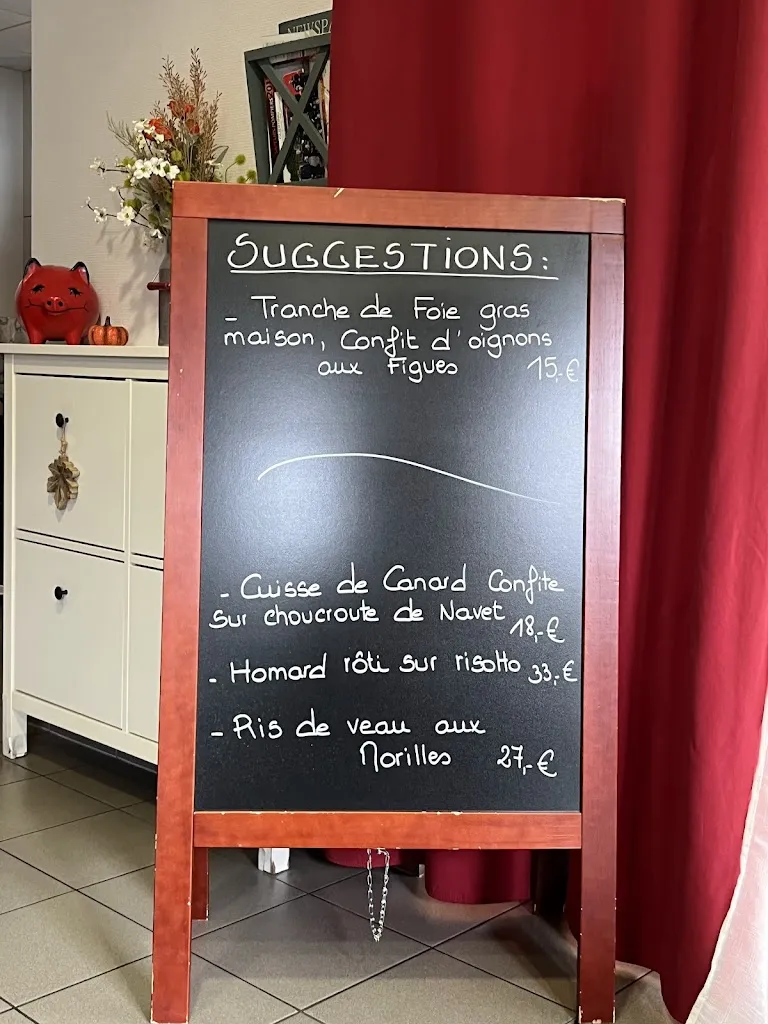 NEWSPA
SUGGESTIONS:
- Tranche de Foie gras
maison, Confit d'oignons
aux Figues 15,-€
- Cuisse de Canard Confite
sur choucroute de Navet
18,-€
- Homard rôti sur risotto 33,-€
- Ris de veau aux
Morilles 27,-€